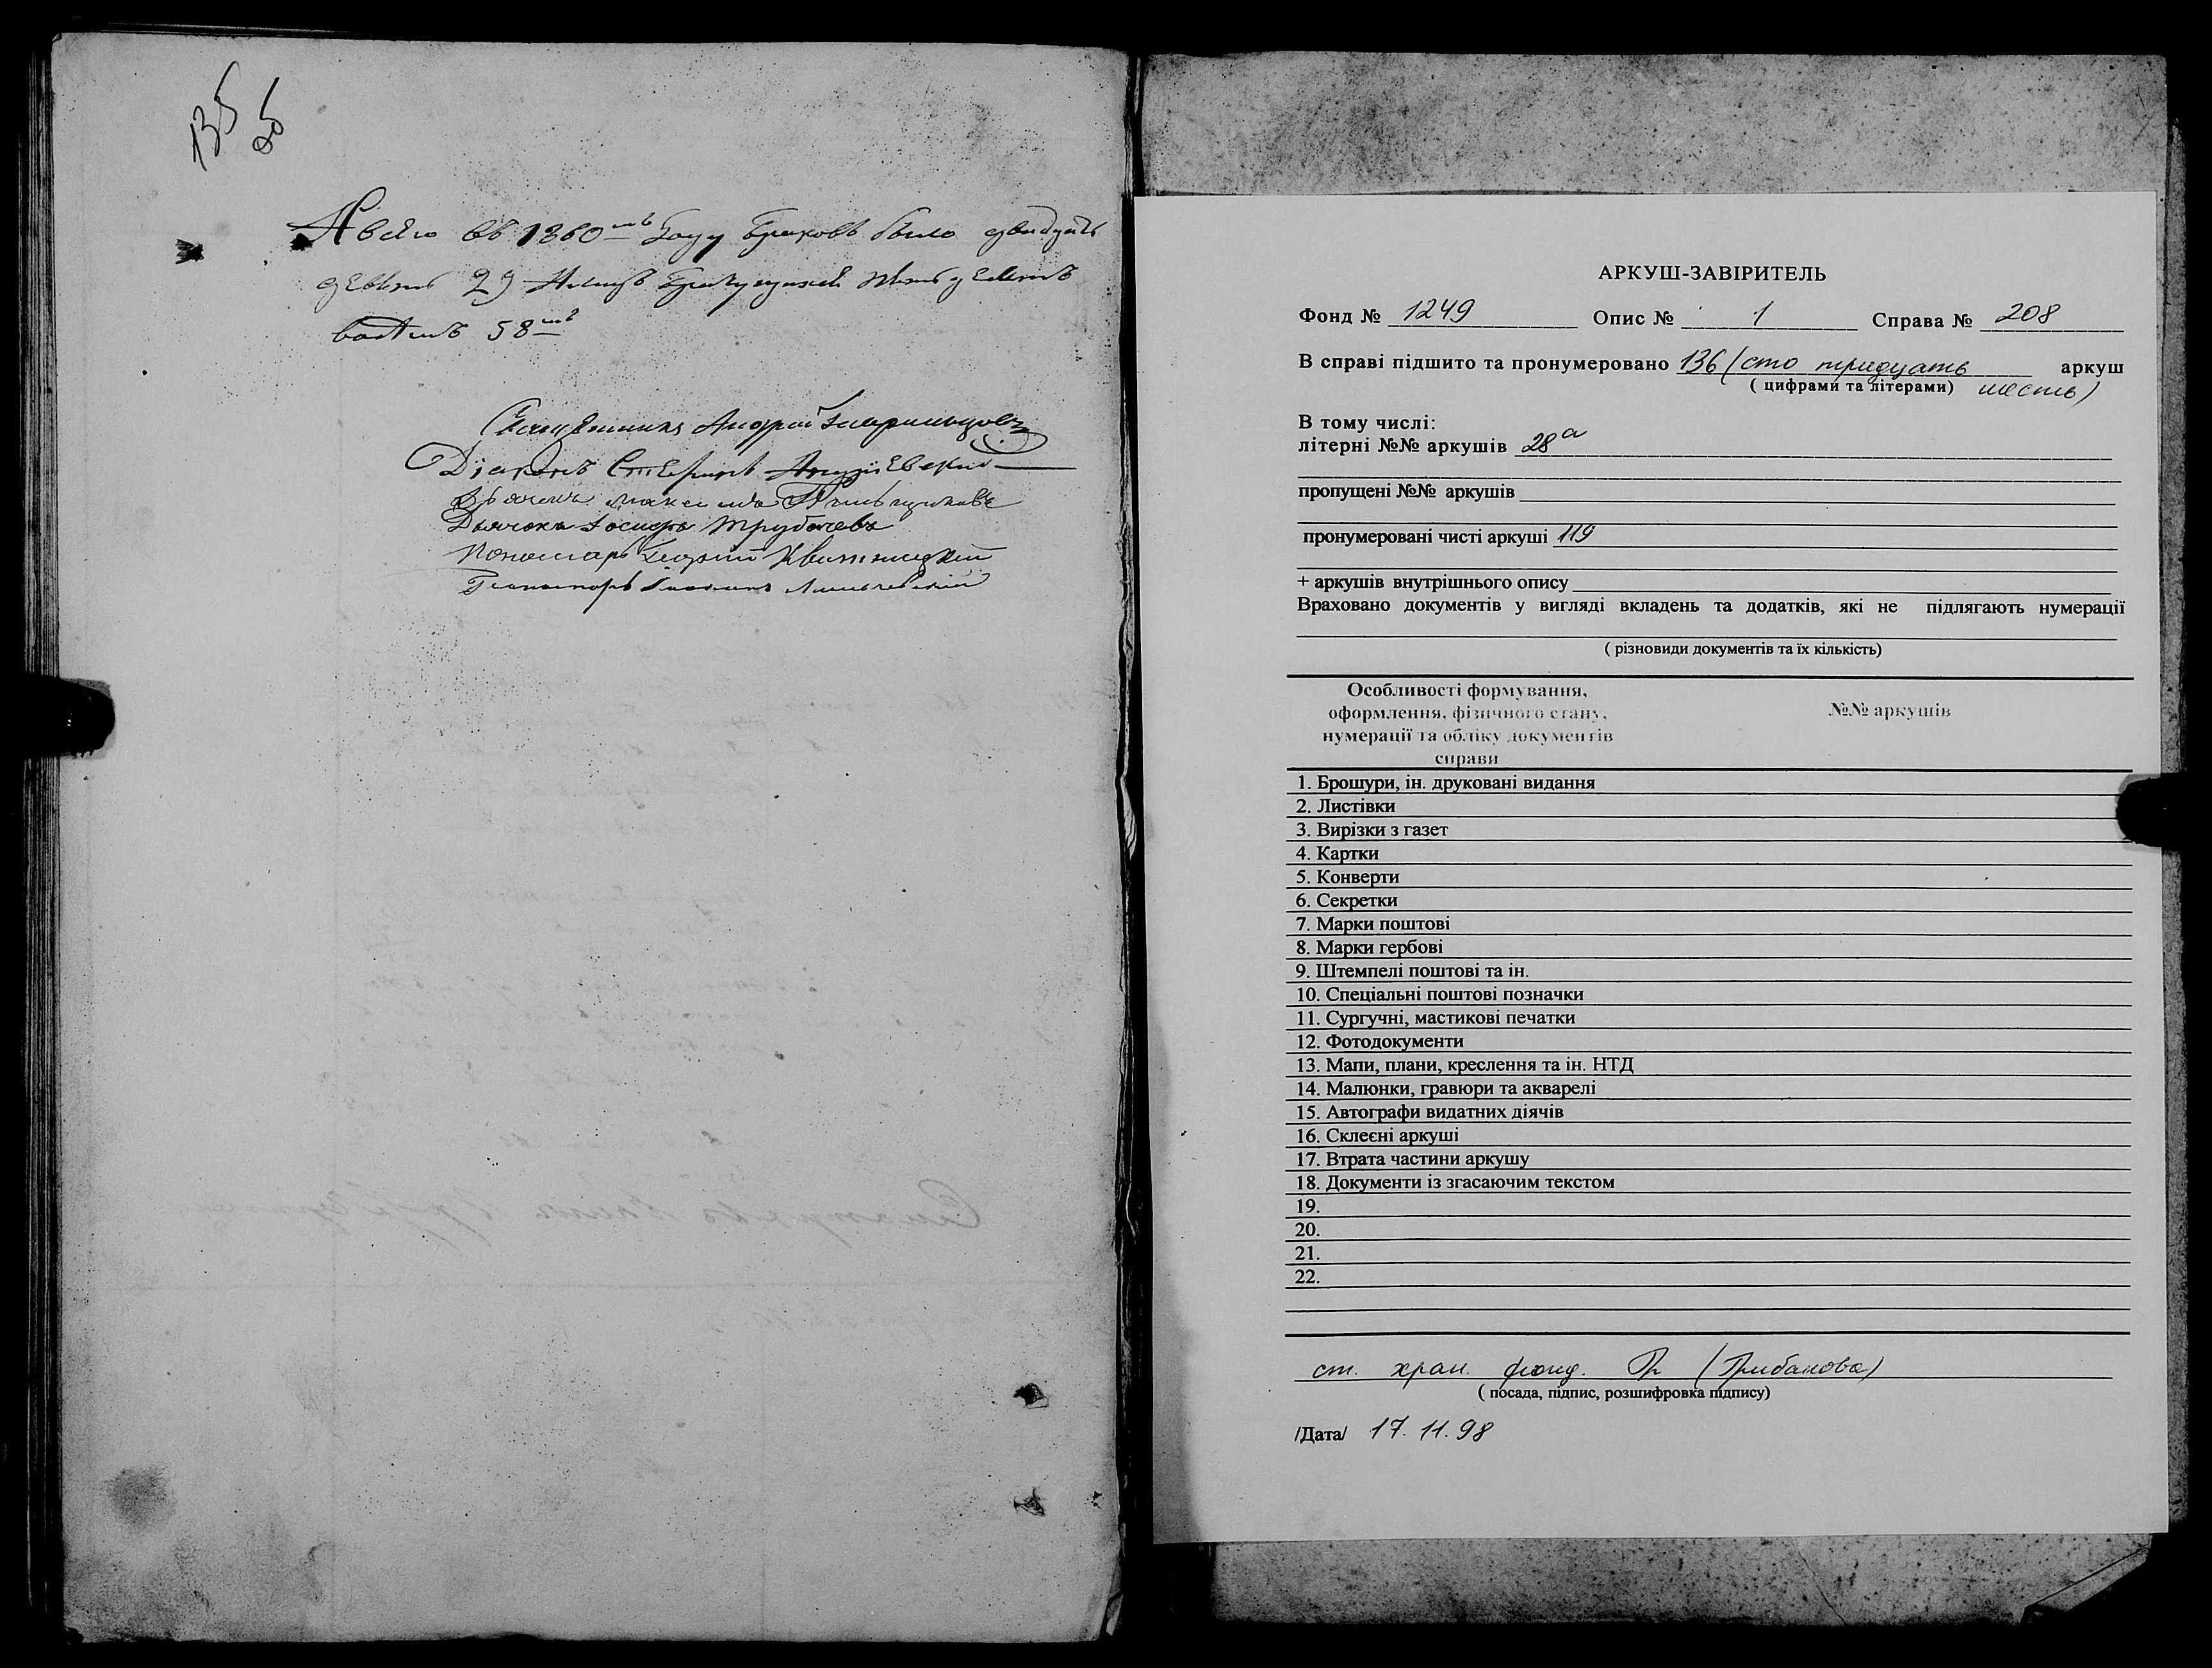 135
об
А всего въ 1860мъ Году браковъ было двадцать
девять 29 А лицъ бракующихся пятьдесятъ
восемь 58мъ
Священникъ Андрей
Діаконъ Стефанъ
Дьячекъ Максимъ
Дьячокъ Іосифъ Трубачевъ
Пономарь Георгій Квитницкій
Пономарь
АРКУШ-ЗАВІРИТЕЛЬ
Фонд № 1249 Опис № 1 Справа № 208
В справі підшито та пронумеровано 136 (сто тридцать аркуш
( цифрами та літерами) шесть)
В тому числі:
літерні №№ аркушів 28а
пропущені №№ аркушів
пронумеровані чисті аркуші 119
+ аркушів внутрішнього опису
Враховано документів у вигляді вкладень та додатків, які не підлягають нумерації
( різновиди документів та їх кількість)
Особливості формування,
оформлення, фізичного стану, №№ аркушів
нумерації та обліку документів
справи
1. Брошури, ін. друковані видання
2. Листівки
3. Вирізки з газет
4. Картки
5. Конверти
6. Секретки
7. Марки поштові
8. Марки гербові
9. Штемпелі поштові та ін.
10. Спеціальні поштові позначки
11. Сургучні, мастикові печатки
12. Фотодокументи
13. Мапи, плани, креслення та ін. НТД
14. Малюнки, гравюри та акварелі
15. Автографи видатних діячів
16. Склеєні аркуші
17. Втрата частини аркушу
18. Документи із згасаючим текстом
19.
20.
21.
22.
ст. хран. фонд. (Грибанова)
( посада, підпис, розшифровка підпису)
/Дата/ 17.11.98